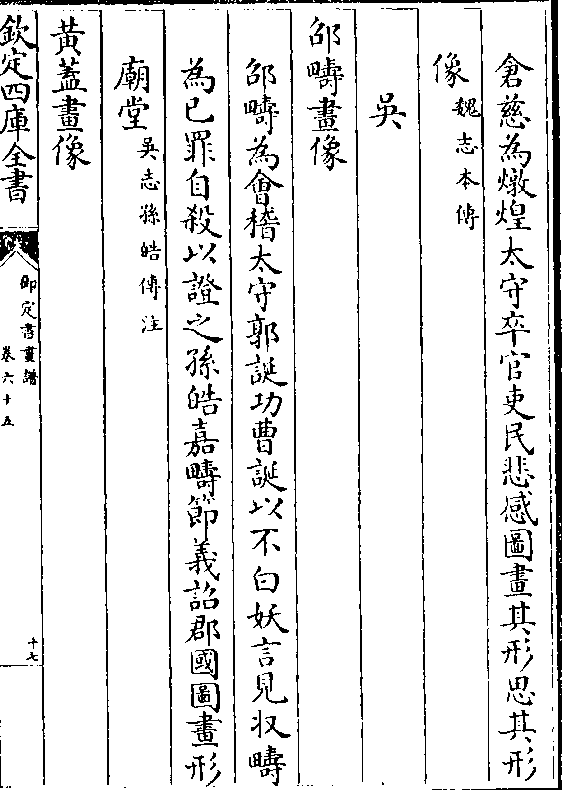 倉慈為燉煌太守卒官吏民悲感圖畫其形思其形
像魏志本傳
吳
邵疇畫像
邵疇為會稽太守郭誕功曹誕以不白妖言見收疇
為已罪自殺以證之孫皓嘉疇節義詔郡國圖畫形
廟堂吳志孫皓傳注
黃蓋畫像
欽定四庫全書
御定書畫譜
卷六十五
十七